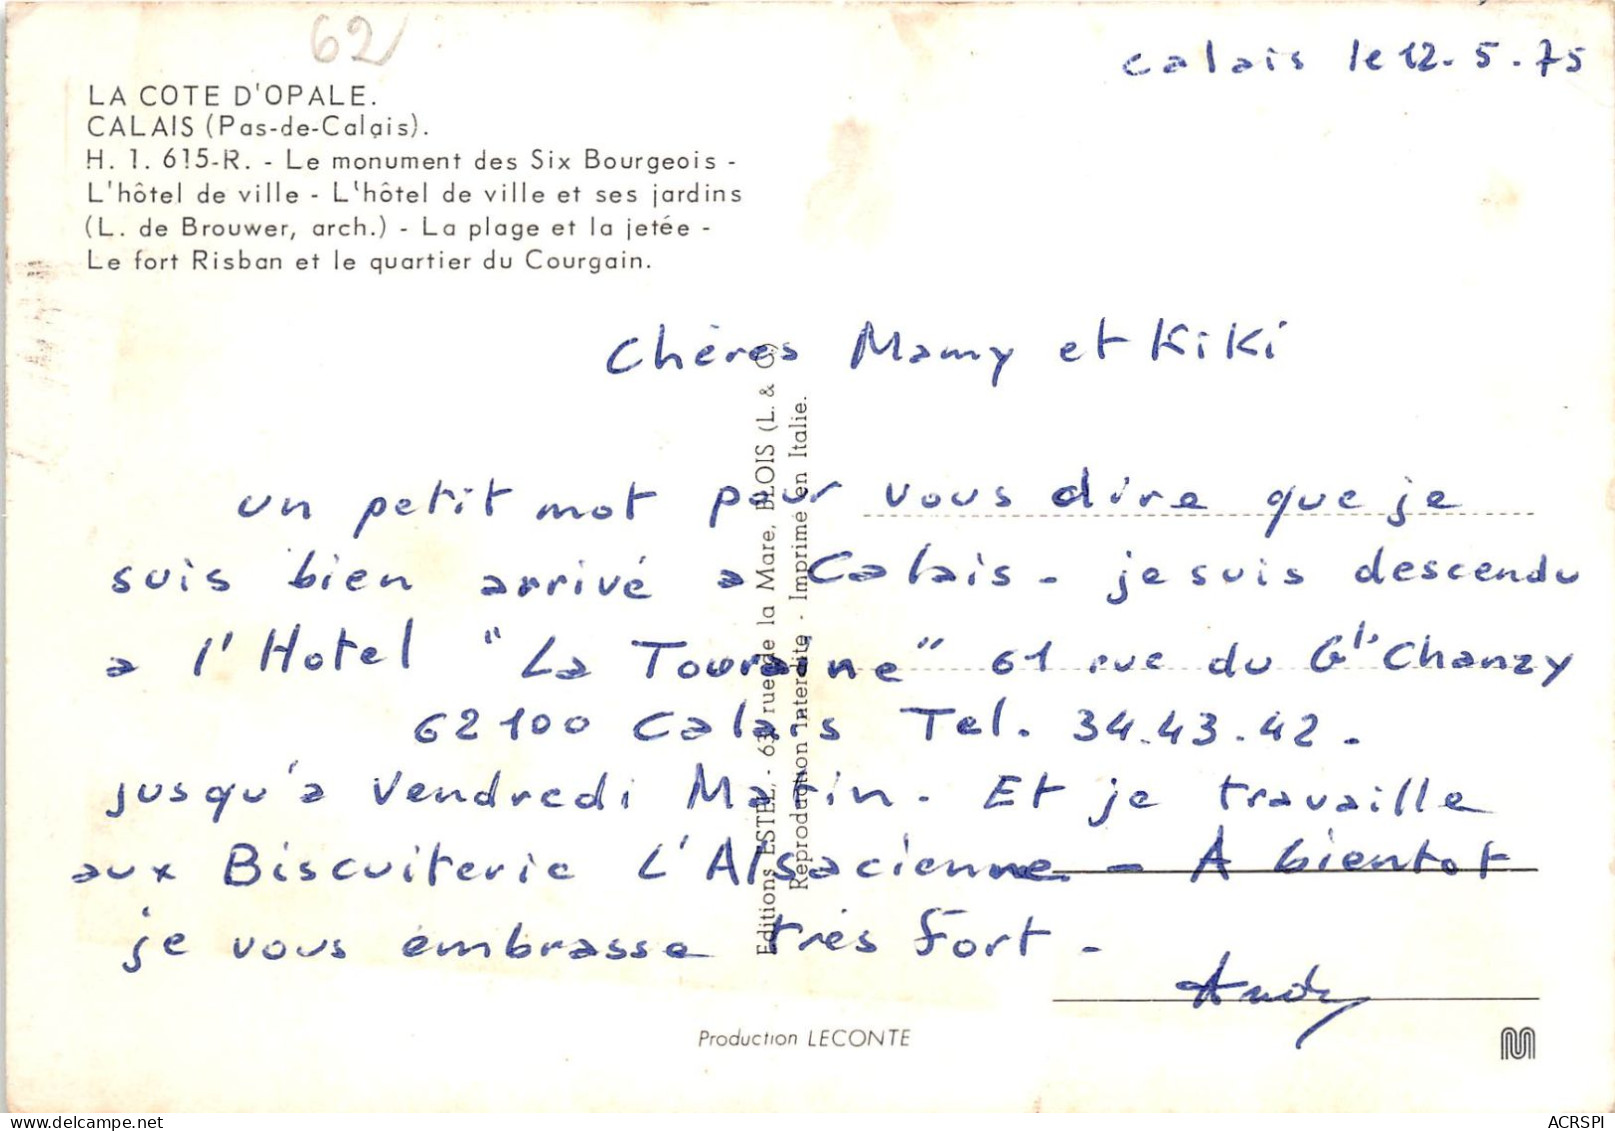 62
calais le 12.5.75
LA COTE D'OPALE.
CALAIS (Pas-de-Calais).
H. 1. 615-R. - Le monument des Six Bourgeois -
L'hôtel de ville - L'hôtel de ville et ses jardins
(L. de Brouwer, arch.) - La plage et la jetée -
Le fort Risban et le quartier du Courgain.
Chères Mamy et Kiki
un petit mot pour vous dire que je
suis bien arrivé a Calais - je suis descendu
a l'Hotel "La Touraine" 61 rue du Gl. Chanzy
62100 Calais Tel. 34.43.42.
jusqu'a Vendredi Matin. Et je travaille
aux Biscuiterie L'Alsacienne - A bientot
je vous embrasse très Fort -
Andy
Editions ESTEL, - 63, rue de la Mare, BLOIS (L. & C.)
Reproduction interdite - Imprimé en Italie.
Production LECONTE
ACRSPI